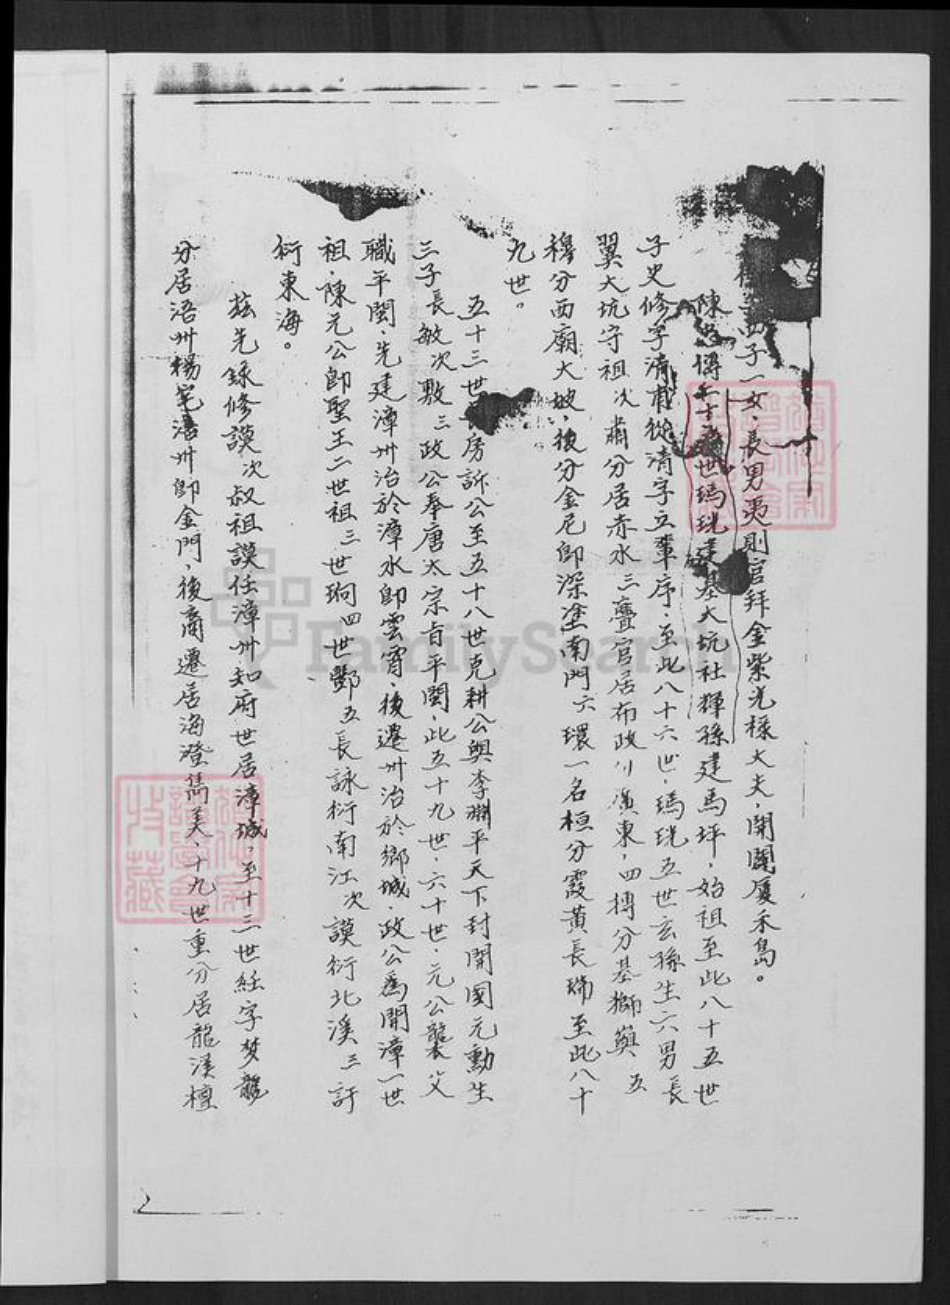 子一女、長男夷則官拜金紫光祿大夫、開闢廈禾島。
陳 世瑪珖建基大坑社輝孫建馬坪、始祖至此八十五世
子史修字清甫從清字立輩序、至此八十六世、瑪珖五世玄孫生六男長
翼大坑守祖次肅分居赤水三疊官居布政 廣東、四摶分基獅 五
穆分西廟大坡、後分金尼即深塗南門六環一名桓分霞黃長瑞至此八十
九世。
五十三世 房訴公至五十八世克耕公與李淵平天下封開國元勳生
三子長敏次敷三政公奉唐太宗旨平閩、此五十九世、六十世、元公襲父
職平閩、先建漳州治於漳水即雲霄、後遷州治於鄉城、政公為開漳一世
祖、陳元公即聖王二世祖三世珦四世酆五長詠衍南江次謨衍北溪三訏
衍東海。
茲先錄修謨次叔祖謨任漳州知府世居漳城、至十三世經字梦龍
分居浯州楊宅浯州即金門、後裔遷居海澄雋美、十九世重分居龍溪檀
FamilySearch